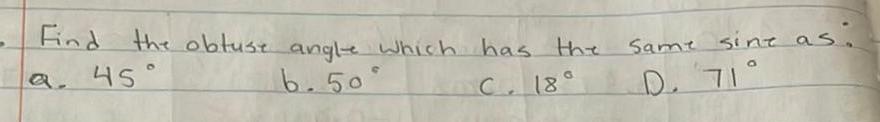 Find the obtuse angle which has the same sine as:
a. 45° b. 50° C. 18° D. 71°